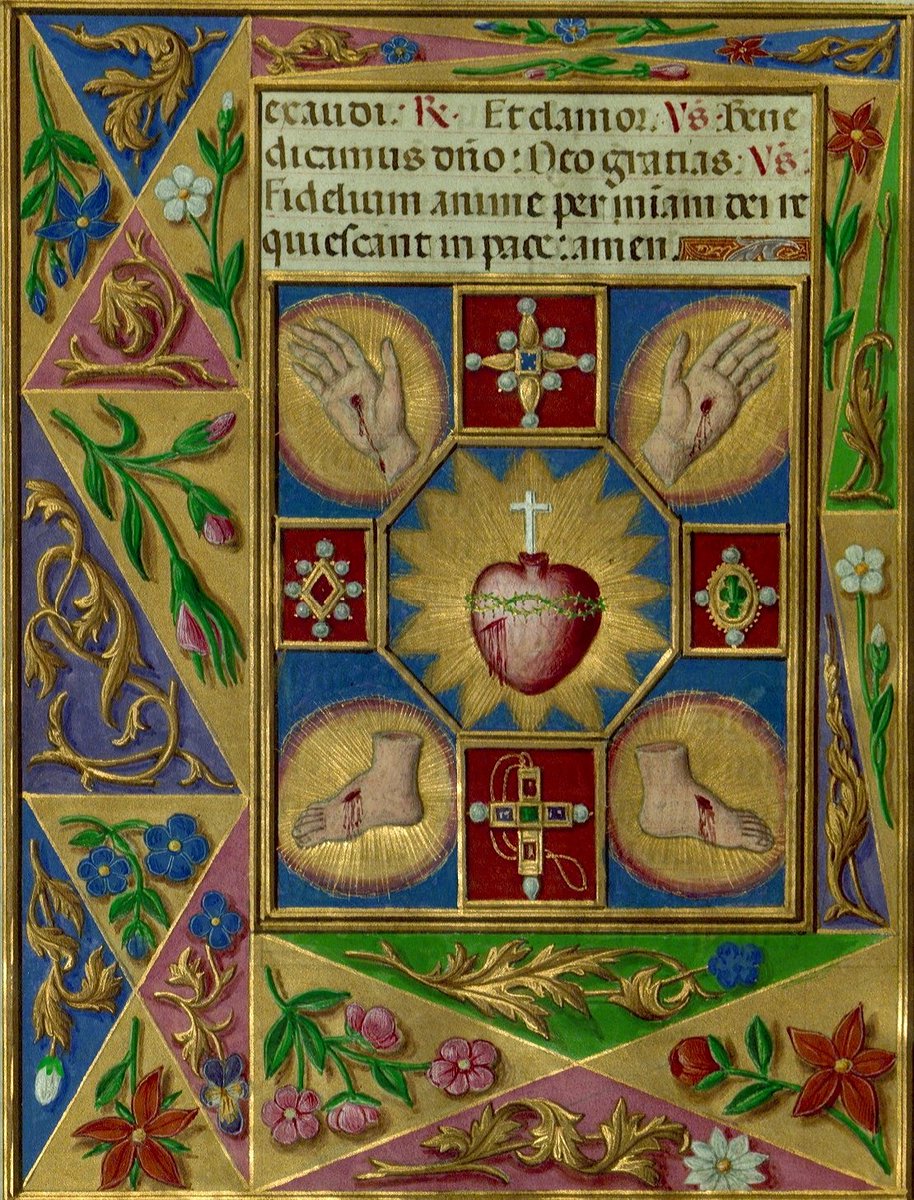 exaudi: R. Et clamor. Vs: Bene
dicamus dño: Deo gratias: Vs:
Fidelium anime per miam dei re
quiescant in pace: amen.